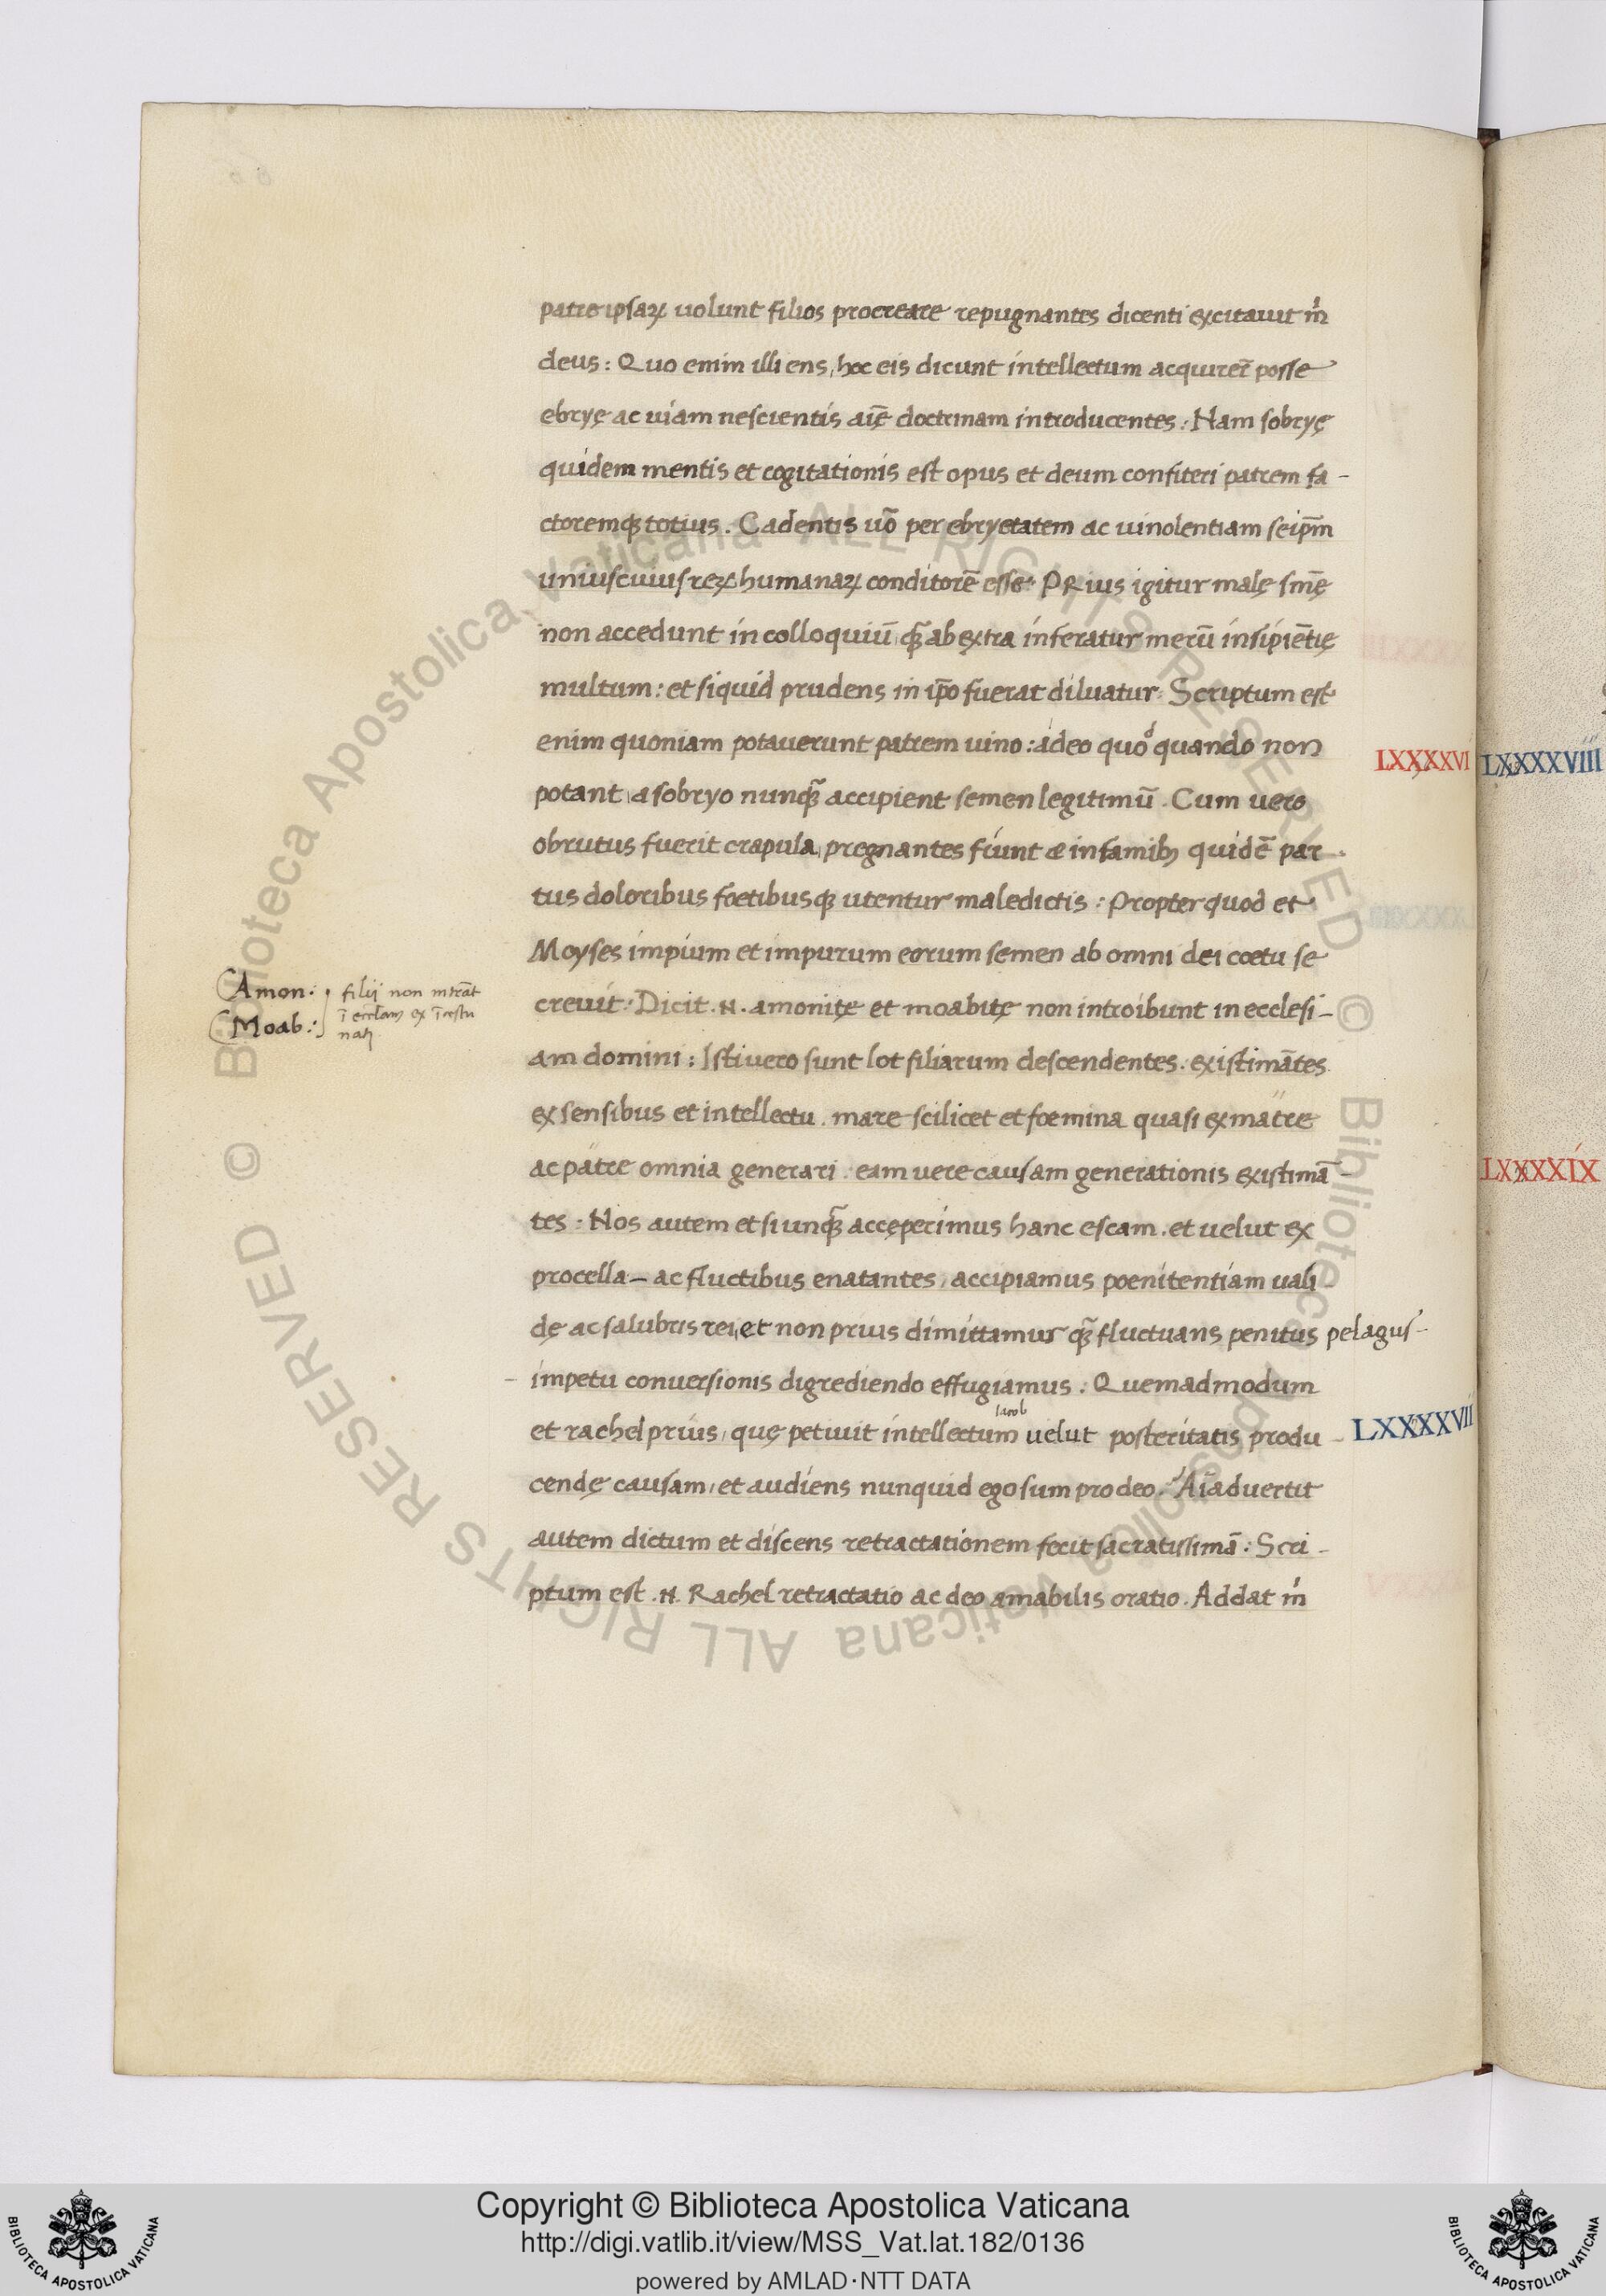 patre ipsaꝝ uolunt filios procreare repugnantes dicenti excitauit m̊
deus: Quo enim illi ens, hoc eis dicunt intellectum acquirer̄ posse
ebryę ac uiam nescientis aīę doctrinam introducentes: Nam sobryę
quidem mentis et cogitationis est opus et deum confiteri patrem fa-
ctoremqꝫ totius. Cadentis uo᷃ per ebryetatem ac uinolentiam seip̄m
uniuscuiusreꝝ humanaꝝ conditorē esse. PRius igitur malę sm̄ę
non accedunt in colloquiū, qꝫ̄ ab extra inferatur merū insipiētię
multum: et siquid prudens in ip̄o fuerat diluatur. Scriptum est
enim quoniam potauerunt patrem uino: adeo quoᵈ quando non
potant, a sobryo nunqꝫ̄ accipient semen legitimū. Cum uero
obrutus fuerit crapula, pregnantes fiunt & infamibꝫ quidē par-
tus doloribus foetibusqꝫ utentur maledictis: Propter quod et
Moyses impium et impurum eorum semen ab omni dei coetu se
creuit: Dicit .N. amonitę et moabitę non introibunt in ecclesi-
am domini: Isti uero sunt lot filiarum descendentes. existimātes
ex sensibus et intellectu. mare scilicet et foemina quasi ex matre
ac patre omnia generari. eam uere causam generationis existimā-
tes: Nos autem et si unqꝫ̄ accęperimus hanc escam. et uelut ex
procella- ac fluctibus enatantes, accipiamus poenitentiam uali-
dę ac salubris rei, et non prius dimittamus qꝫ̄ fluctuans penitus pelagus-
- impetu conuersionis digrediendo effugiamus. Quemadmodum
Iacob
et rachel prius, quę petiuit intellectum uelut posteritatis produ-
cendę causam, et audiens nunquid ego sum pro deo. Aīaduertit
autem dictum et discens retractationem fecit sacratissimā: Scri-
ptum est .N. Rachel retractatio ac deo amabilis oratio. Addat m̊
Amon:
Moab:
filij non intrāt
ī eccłam ex
LXXXXVI
LXXXXVII
LXXXXVIII
LXXXXIX
© Biblioteca Apostolica Vaticana ALL RIGHTS RESERVED
© Biblioteca Apostolica Vaticana ALL RIGHTS RESERVED
Copyright © Biblioteca Apostolica Vaticana
http://digi.vatlib.it/view/MSS_Vat.lat.182/0136
powered by AMLAD·NTT DATA
BIBLIOTECA APOSTOLICA VATICANA
BIBLIOTECA APOSTOLICA VATICANA